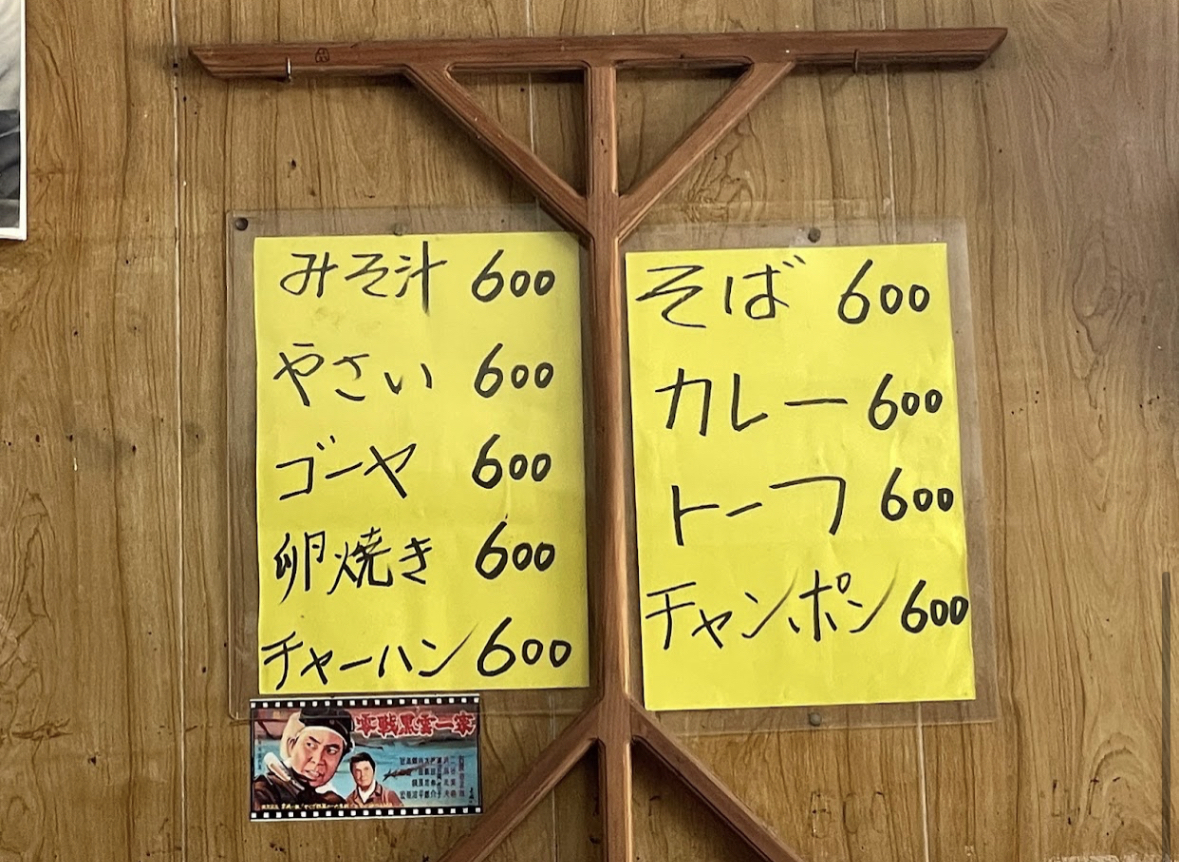 みそ汁 600
やさい 600
ゴーヤ 600
卵焼き 600
チャーハン 600
そば 600
カレー 600
トーフ 600
チャンポン 600
零戦黒雲一家